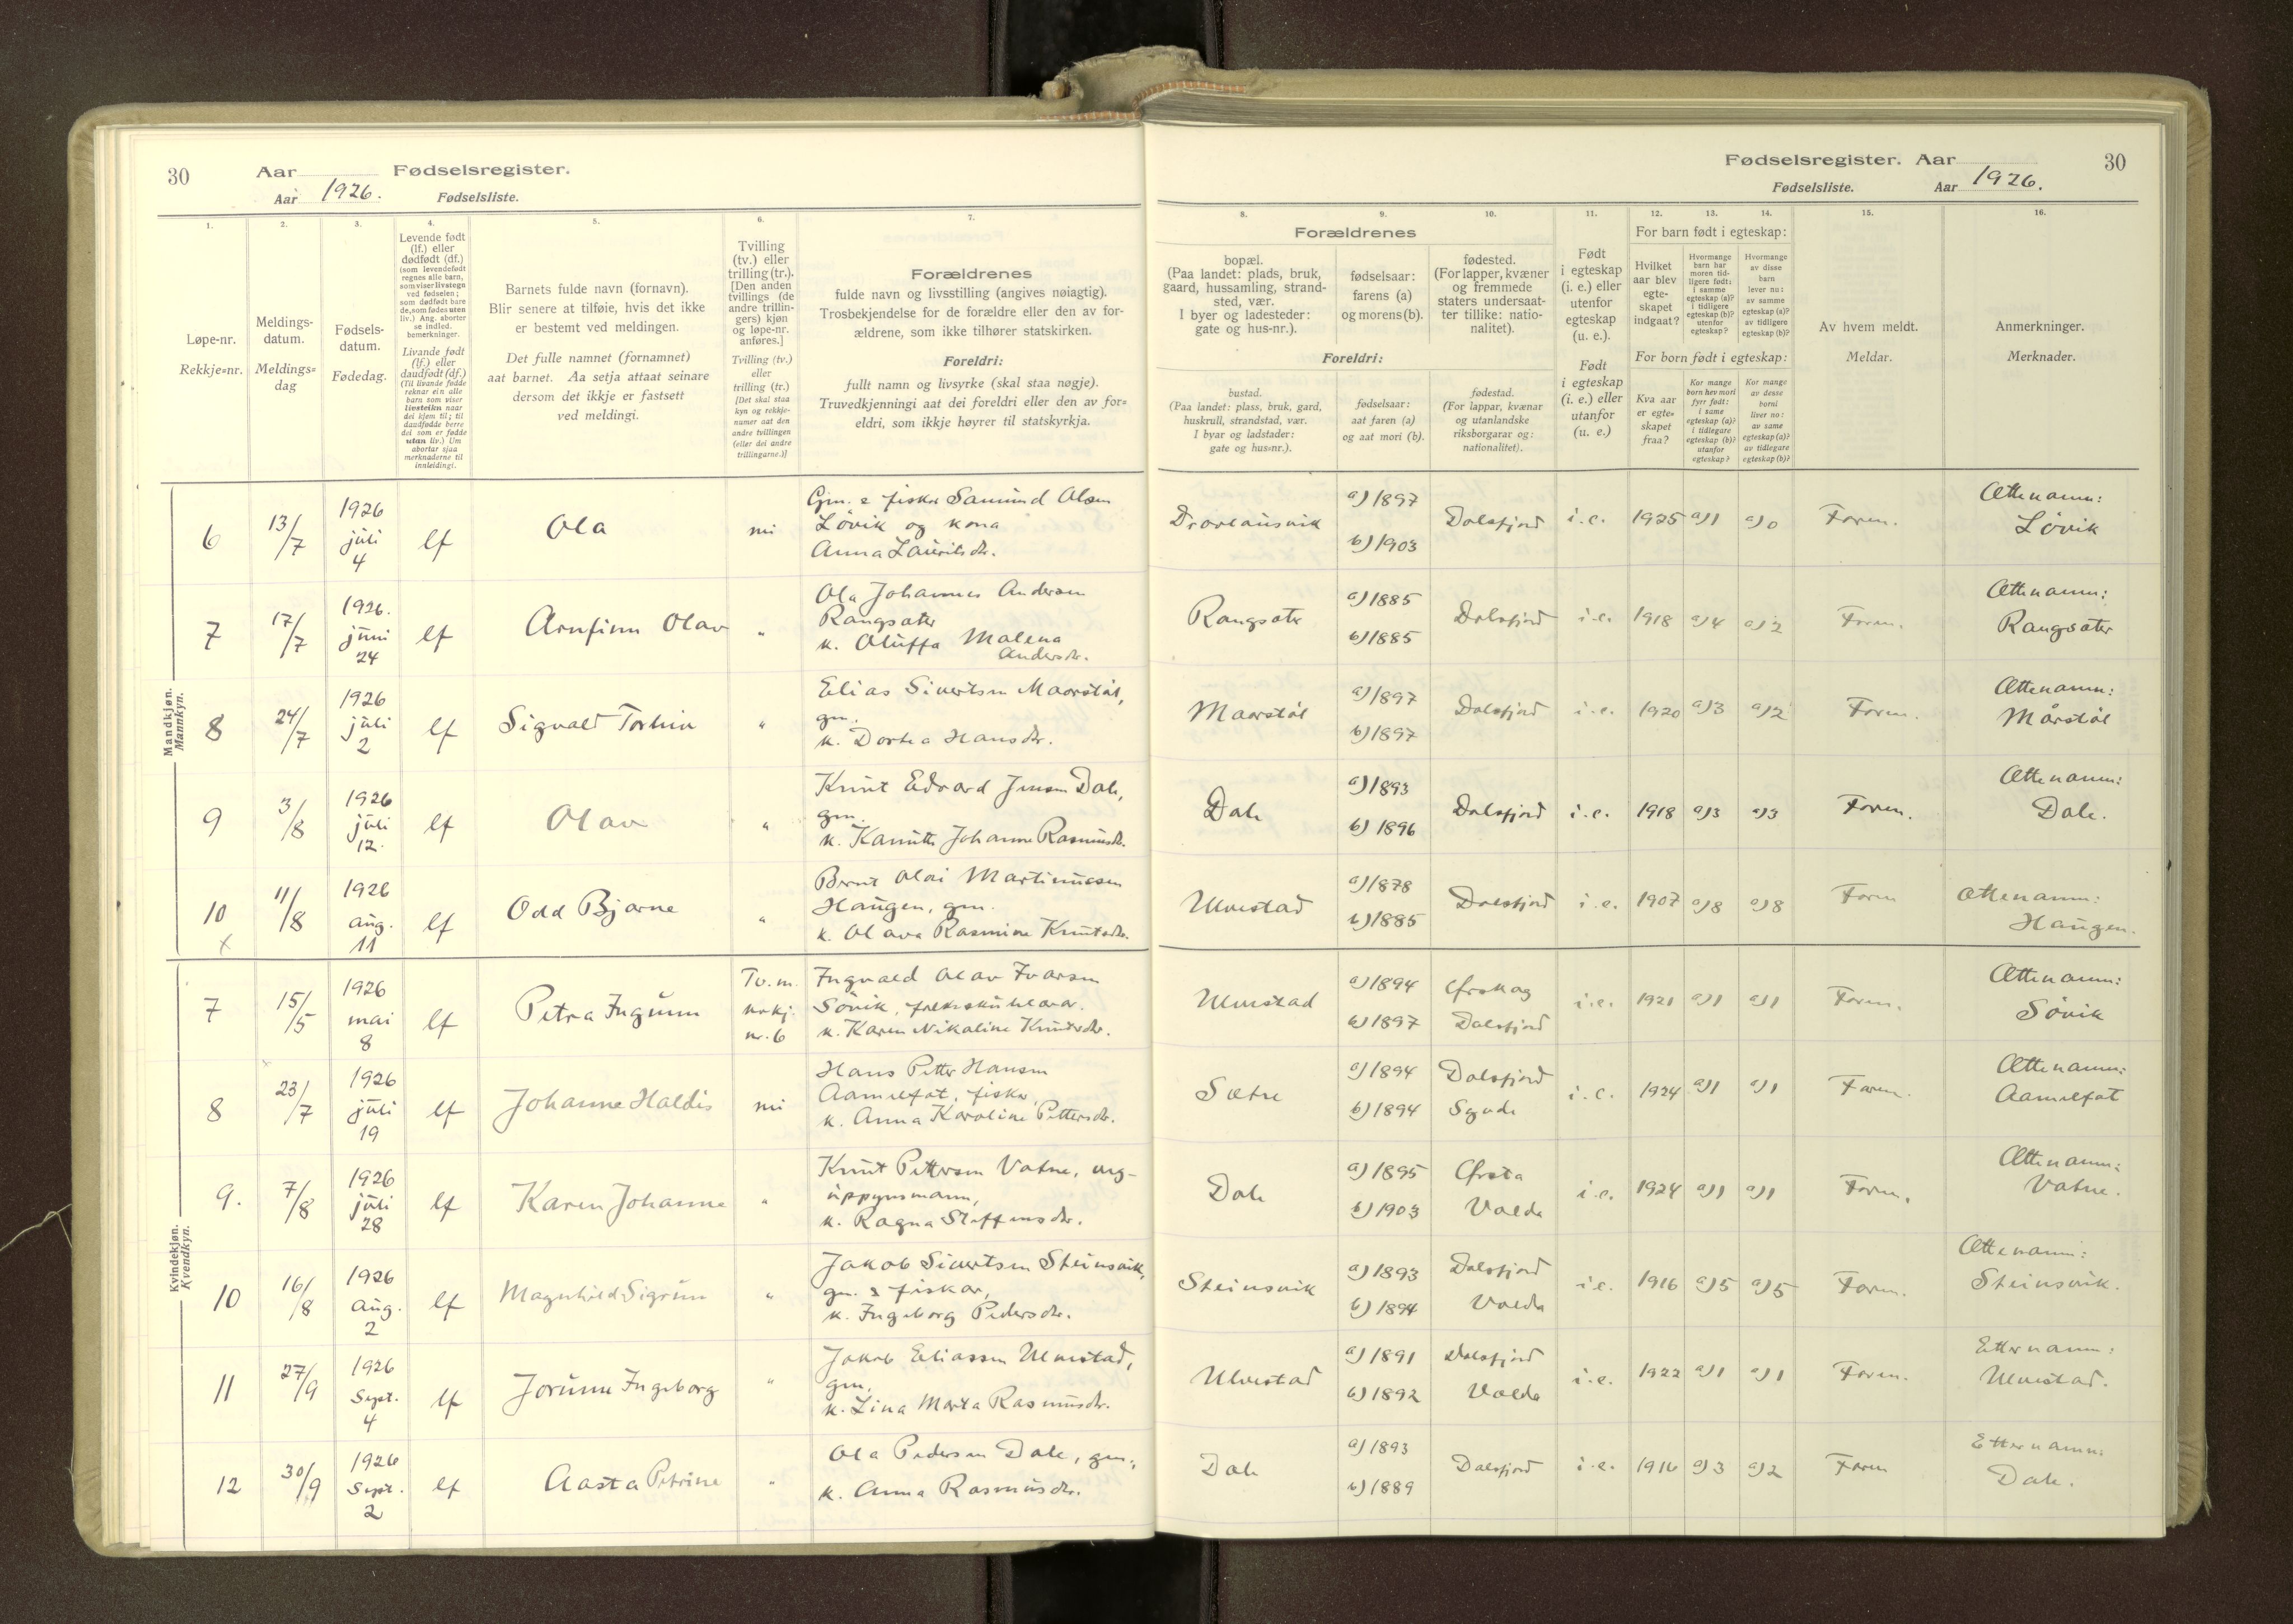 30 Aar Fødselsregister.
Aar 1926. Fødselsliste.
1. 2. 3. 4. 5. 6. 7.
Løpe-nr.
Rekkje=nr.
Meldings-
datum.
Meldings=
dag
Fødsels-
datum.
Fødedag.
Levende født
(lf.) eller
dødfødt (df.)
(som levendefødt
regnes alle barn,
som viser livstegn
ved fødselen;
som dødfødt bare
de, som fødes uten
liv.) Ang. aborter
se indled.
bemerkninger.
Livande født
(lf.) eller
daudfødt (df.)
(Til livande fødde
reknar ein alle
barn som viser
livsteikn naar
dei kjem til; til
daudfødde berre
dei som er fødde
utan liv.) Um
abortar sjaa
merknaderne til
innleidingi.
Barnets fulde navn (fornavn).
Blir senere at tilføie, hvis det ikke
er bestemt ved meldingen.
Det fulle namnet (fornamnet)
aat barnet. Aa setja attaat seinare
dersom det ikkje er fastsett
ved meldingi.
Tvilling
(tv.) eller
trilling (tr.).
[Den anden
tvillings (de
andre trillin-
gers) kjøn
og løpe-nr.
anføres.]
Tvilling (tv.)
eller
trilling (tr.)
[Det skal staa
kyn og rekkje-
numer aat den
andre tvillingen
(eller dei andre
trillingarne.)]
Forældrenes
fulde navn og livsstilling (angives nøiagtig).
Trosbekjendelse for de forældre eller den av for-
ældrene, som ikke tilhører statskirken.
Foreldri:
fullt namn og livsyrke (skal staa nøgje).
Truvedkjenningi aat dei foreldri eller den av for=
eldri, som ikkje høyrer til statskyrkja.
Mandkjøn.
Mannkyn.
6 13/7 1926 juli 4 lf Ola nei
Gm. & fiskar Samund Olsen
Løvik og kona
Anna Lauritsdr.
7 17/7 1926. juni 24 lf Arnfinn Olav "
Ola Johannes Andersen
Rangsæter
k. Oluffa Malena
Andersdr.
8 24/7 1926 juli 2 lf Sigvald Torbin "
Elias Sivertsen Maarstøl,
gm.
k. Dortea Hansdr.
9 3/8 1926 juli 12. lf Olav "
Knut Edvard Jensen Dale,
gm.
k. Kanutte Johanne Rasmusdr.
10 x 11/8 1926 aug. 11 lf Odd Bjarne "
Bernt Olai Martinussen
Haugen, gm.
k. Olava Rasmine Knutsdr.
Kvindekjøn.
Kvendkyn.
7 15/5 1926 mai 8 lf Petra Ingunn Tv. m. rekkj. nr. 6
Ingvald Olav Ivarsen
Søvik,
k. Karen Nikaline Knutsdr.
8 23/7 1926 juli 19 lf Johanne Haldis nei
Hans Petter Hansen
Aamelfot, fiskar,
k. Anna Karoline Pettersdr.
9. 7/8 1926 juli 28 lf Karen Johanne "
Knut Pettersen Vatne, ung-
uppynsmann,
k. Ragna Steffensdr.
10 16/8 1926 aug. 2 lf Magnhild Sigrun "
Jakob Sivertsen Steinsvik,
gm. & fiskar,
k. Ingeborg Pedersdr.
11 27/9 1926 Sept. 4 lf Jorunn Ingeborg "
Jakob Eliassen Ulvestad,
gm.
k. Lina Marta Rasmusdr.
12 30/9 1926 Sept. 2 lf Aasta Petrine "
Ola Pedersen Dale, gm.,
k. Anna Rasmusdr.
Fødselsregister. Aar 30
Fødselsliste. Aar 1926.
8. 9. 10. 11. 12. 13. 14. 15. 16.
Forældrenes
bopæl.
(Paa landet: plads, bruk,
gaard, hussamling, strand-
sted, vær.
I byer og ladesteder:
gate og hus-nr.).
fødselsaar:
farens (a)
og morens (b).
fødested.
(For lapper, kvæner
og fremmede
staters undersaat-
ter tillike: natio-
nalitet).
Foreldri:
bustad.
(Paa landet: plass, bruk, gard,
huskrull, strandstad, vær.
I byar og ladstader:
gate og hus=nr.).
fødselsaar:
aat faren (a)
og aat mori (b).
fødestad.
(For lappar, kvænar
og utanlandske
riksborgarar og:
nationalitet).
Født
i egteskap
(i. e.) eller
utenfor
egteskap
(u. e.).
Født
i egteskap
(i. e.) eller
utanfor
(u. e.)
For barn født i egteskap:
Hvilket
aar blev
egte-
skapet
indgaat?
Hvormange
barn har
moren tid-
ligere født:
i samme
egteskap (a)?
i tidligere
egteskap (b)?
utenfor
egteskap?
Hvormange
av disse
barn
lever nu:
av samme
egteskap (a)?
av tidligere
egteskap (b)?
For born født i egteskap:
Kva aar
er egte=
skapet
fraa?
Kor mange
born hev mori
fyrr født:
i same
egteskap (a)?
i tidlegare
egteskap (b)?
utanfor
egteskap?
Kor mange
av desse
borni
liver no:
av same
egteskap (a)?
av tidlegare
egteskap (b)?
Av hvem meldt.
Meldar.
Anmerkninger.
Merknader.
Dravlausvik a) 1897 b) 1903 Dalsfjord i. e. 1925 a) 1 a) 0 Faren. Ættenamn: Løvik
Rangsæter a) 1885 b) 1885 Dalsfjord i. e. 1918 a) 4 a) 2 Faren. Ættenamn: Rangsæter
Maarstøl a) 1897 b) 1897 Dalsfjord i. e. 1920 a) 3 a) 2 Faren. Ættenamn: Mårstøl
Dale a) 1893 b) 1896 Dalsfjord i. e. 1918 a) 3 a) 3 Faren. Ættenamn: Dale.
Ulvestad a) 1878 b) 1885 Dalsfjord i. e. 1907 a) 8 a) 8 Faren Ættenamn: Haugen.
Ulvestad a) 1894 b) 1897 Ørskog Dalsfjord i. e. 1921 a) 1 a) 1 Faren. Ættenamn: Søvik
Sætre a) 1894 b) 1894 Dalsfjord Syvde i. e. 1924 a) 1 a) 1 Faren. Ættenamn: Aamelfot
Dale a) 1895 b) 1903 Ørsta Volda i. e. 1924 a) 1 a) 1 Faren. Ættenamn: Vatne.
Steinsvik a) 1893 b) 1894 Dalsfjord Volda i. e. 1916 a) 5 a) 5 Faren. Ættenamn: Steinsvik.
Ulvestad a) 1891 b) 1892 Dalsfjord Volda i. e. 1922 a) 1 a) 1 Faren. Etternamn: Ulvestad.
Dale a) 1893 b) 1889 Dalsfjord i. e. 1916 a) 3 a) 2 Faren Etternamn: Dale.